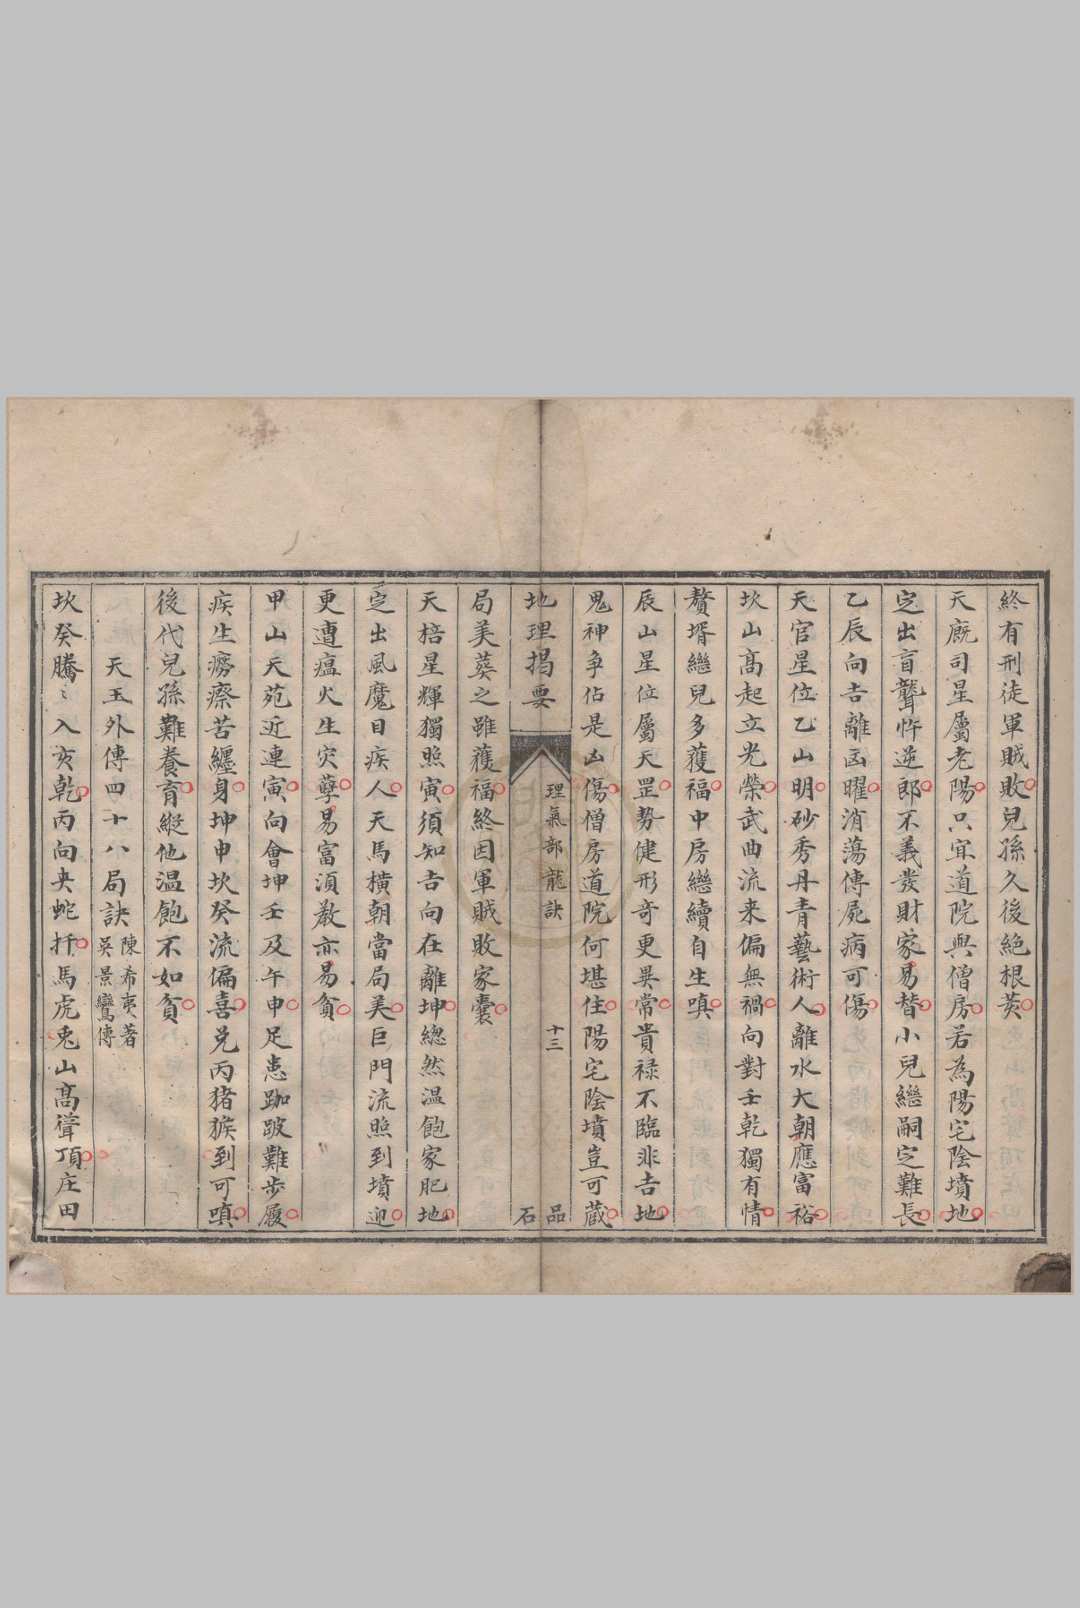 終有刑徒軍賊敗兒孫久後絕根荄
天廐司星屬老陽只宜道院與僧房若為陽宅陰墳地
㝎出盲聾忤逆郎不義發財家易替小兒繼嗣㝎難長
乙辰向吉離凶曜消蕩傳屍病可傷
天官星位乙山明砂秀丹青藝術人離水大朝應富裕
坎山髙起立光榮武曲流来偏無禍向對壬乾獨有情
贅壻繼兒多獲福中房繼續自生嗔
辰山星位屬天罡勢健形奇更異常貴祿不臨非吉地
鬼神争佔是凶傷僧房道院何堪住陽宅陰墳豈可藏
地理揭要 理氣部龍訣 十三 品石
局美葬之雖獲福終因軍賊敗家囊
天棓星輝獨照寅須知吉向在離坤緫然温飽家肥地
㝎出風魔目疾人天馬橫朝當局美巨門流照到墳迎
更遭瘟火生灾孽易富須教亦易貧
甲山天苑近連寅向會坤壬及午申足患跏跛難步履
疾生癆瘵苦纏身坤申坎癸流偏喜兑丙猪猴到可嗔
後代兒孫難養育縱他温飽不如貧
天玉外傳四十八局訣 陳希夷著 吳景鸞傳
坎癸騰〻入亥乾丙向央蛇扦馬虎兎山髙聳頂庄田